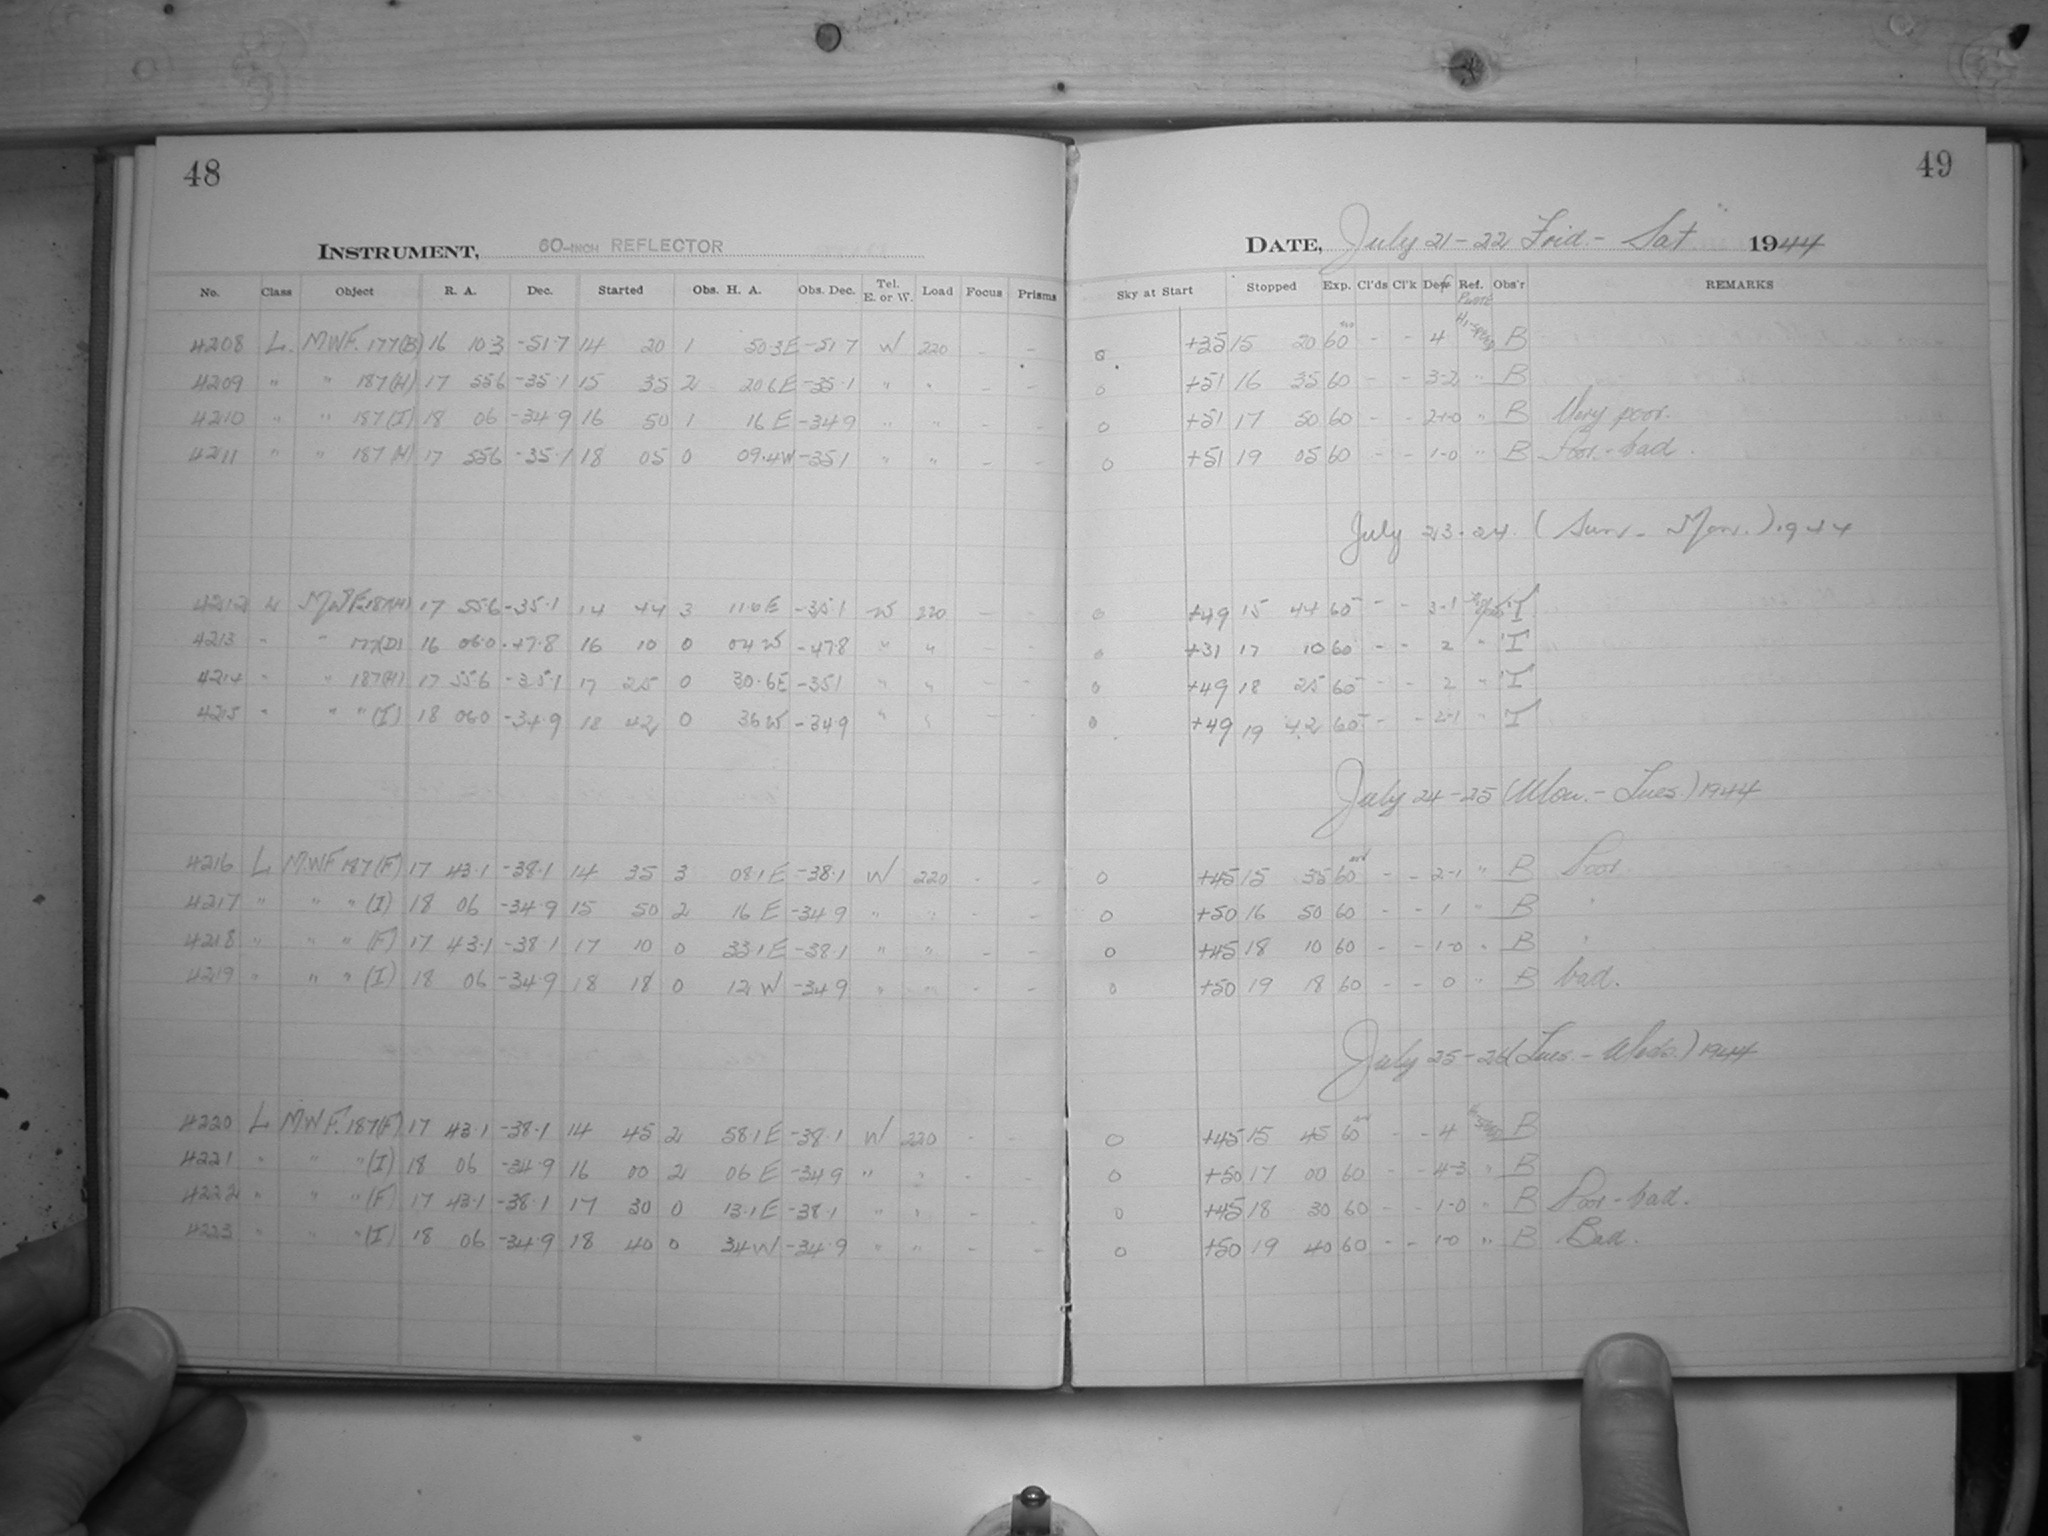 48
INSTRUMENT, 60-INCH REFLECTOR
No. Class Object R. A. Dec. Started Obs. H. A. Obs. Dec. Tel. E. or W. Load Focus Prisms
4208 L. MWF. 177(B) 16 10 3 -51.7 14 20 1 50 3E -51 7 W 220 - -
4209 " " 187(H) 17 55 6 -35.1 15 35 2 20 6E -35.1 " " - -
4210 " " 187(I) 18 06 -34 9 16 50 1 16 E -34 9 " " - -
4211 " " 187(H) 17 55 6 -35.1 18 05 0 09.4W -35 1 " " - -
4212 L MWF.187(H) 17 55 6 -35.1 14 44 3 11.6E -35.1 W 220 - -
4213 " " 177(D) 16 06.0 -47.8 16 10 0 04 W -47.8 " " - -
4214 " " 187(H) 17 55 6 -35.1 17 25 0 30.6E -35 1 " " - -
4215 " " "(I) 18 06 0 -34.9 18 42 0 36 W -34 9 " " - -
4216 L MWF 187(F) 17 43.1 -38.1 14 35 3 08.1E -38.1 W 220 - -
4217 " " "(I) 18 06 -34 9 15 50 2 16 E -34 9 " " - -
4218 " " "(F) 17 43.1 -38.1 17 10 0 33.1E -38.1 " " - -
4219 " " "(I) 18 06 -34 9 18 18 0 12 W -34 9 " " - -
4220 L MWF.187(F) 17 43.1 -38.1 14 45 2 58.1E -38.1 W 220 - -
4221 " " "(I) 18 06 -34.9 16 00 2 06 E -34 9 " " - -
4222 " " "(F) 17 43.1 -38.1 17 30 0 13.1E -38.1 " " - -
4223 " " "(I) 18 06 -34.9 18 40 0 34 W -34.9 " " - -
49
DATE, July 21-22 Frid.- Sat 1944
Sky at Start Stopped Exp. Cl'ds Cl'k Def Ref. Obs'r REMARKS
0 +35 15 20 60 - - 4 B
0 +51 16 35 60 - - 3-2 " B
0 +51 17 50 60 - - 2-1-0 " B Very poor.
0 +51 19 05 60 - - 1-0 " B Poor-bad.
July 23-24. (Sun. - Mon.) 1944
0 +49 15 44 60 - - 3-1 I
0 +31 17 10 60 - - 2 " I
0 +49 18 25 60 - - 2 " I
0 +49 19 42 60 - - 2-1 " I
July 24-25 (Mon. - Tues.) 1944
0 +45 15 35 60 - - 2-1 " B Poor
0 +50 16 50 60 - - 1 " B "
0 +45 18 10 60 - - 1-0 " B "
0 +50 19 18 60 - - 0 " B bad.
July 25-26 (Tues. - Weds.) 1944
0 +45 15 45 60 - - 4 B
0 +50 17 00 60 - - 4-3 " B
0 +45 18 30 60 - - 1-0 " B Poor-bad.
0 +50 19 40 60 - - 1-0 " B Bad.